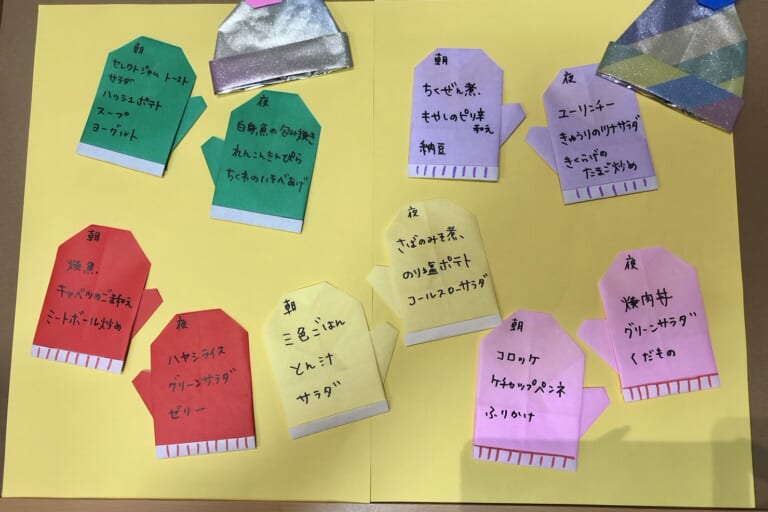 朝
セレクトジャム トースト
サラダ
ハッシュポテト
スープ
ヨーグルト
夜
白身魚の包み焼き
れんこんきんぴら
ちくわのいそべあげ
朝
ちくぜん煮、
もやしのピリ辛
和え
納豆
夜
ユーリンチー
きゅうりのツナサラダ
きくらげの
たまご炒め
朝
焼魚、
キャベツのごま和え
ミートボール炒め
夜
ハヤシライス
グリーンサラダ
ゼリー
朝
三色ごはん
とん汁
サラダ
夜
さばのみそ煮、
のり塩ポテト
コールスローサラダ
朝
コロッケ
ケチャップペンネ
ふりかけ
夜
焼肉丼
グリーンサラダ
くだもの